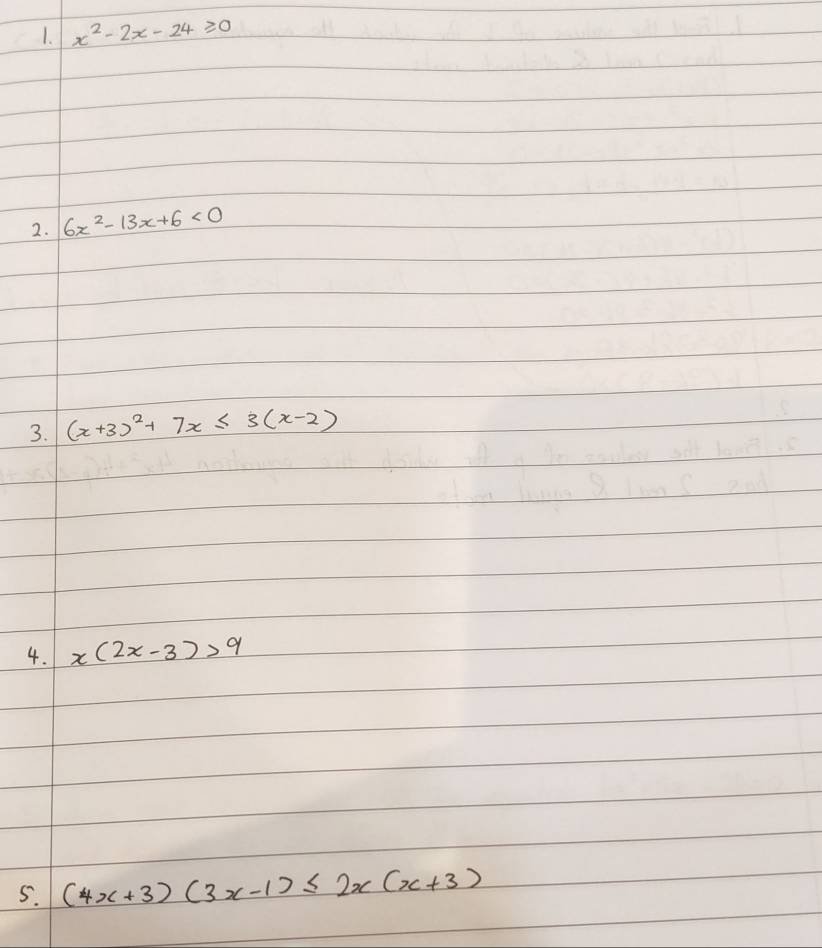 1. x² - 2x - 24 ≥ 0
2. 6x² - 13x + 6 < 0
3. (x+3)² + 7x ≤ 3(x-2)
4. x(2x-3) > 9
5. (4x+3)(3x-1) ≤ 2x(x+3)